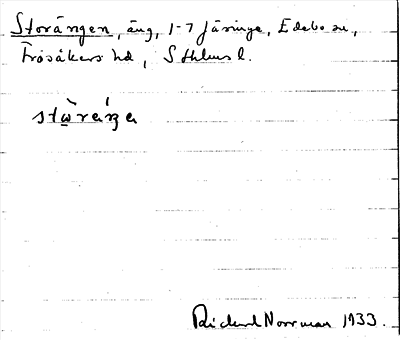 Storängen, äng, 1-7 Järinge, Edebo sn,
Frösåkers hd, Sthlms l.
stὼ̱rèŋ́ɐ
Rickard Norrman 1933.